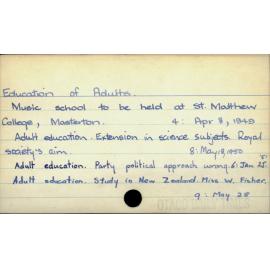 Education of Adults.
Music school to be held at St. Matthew
College, Masterton. 4: Apr 8, 1949
Adult education. Extension in science subjects. Royal
Society's aim. 8: May 19, 1950
Adult education. Party political approach wrong. 6: Jan 25. '51
Adult education. Study in New Zealand. Miss W. Fisher.
9: May 28